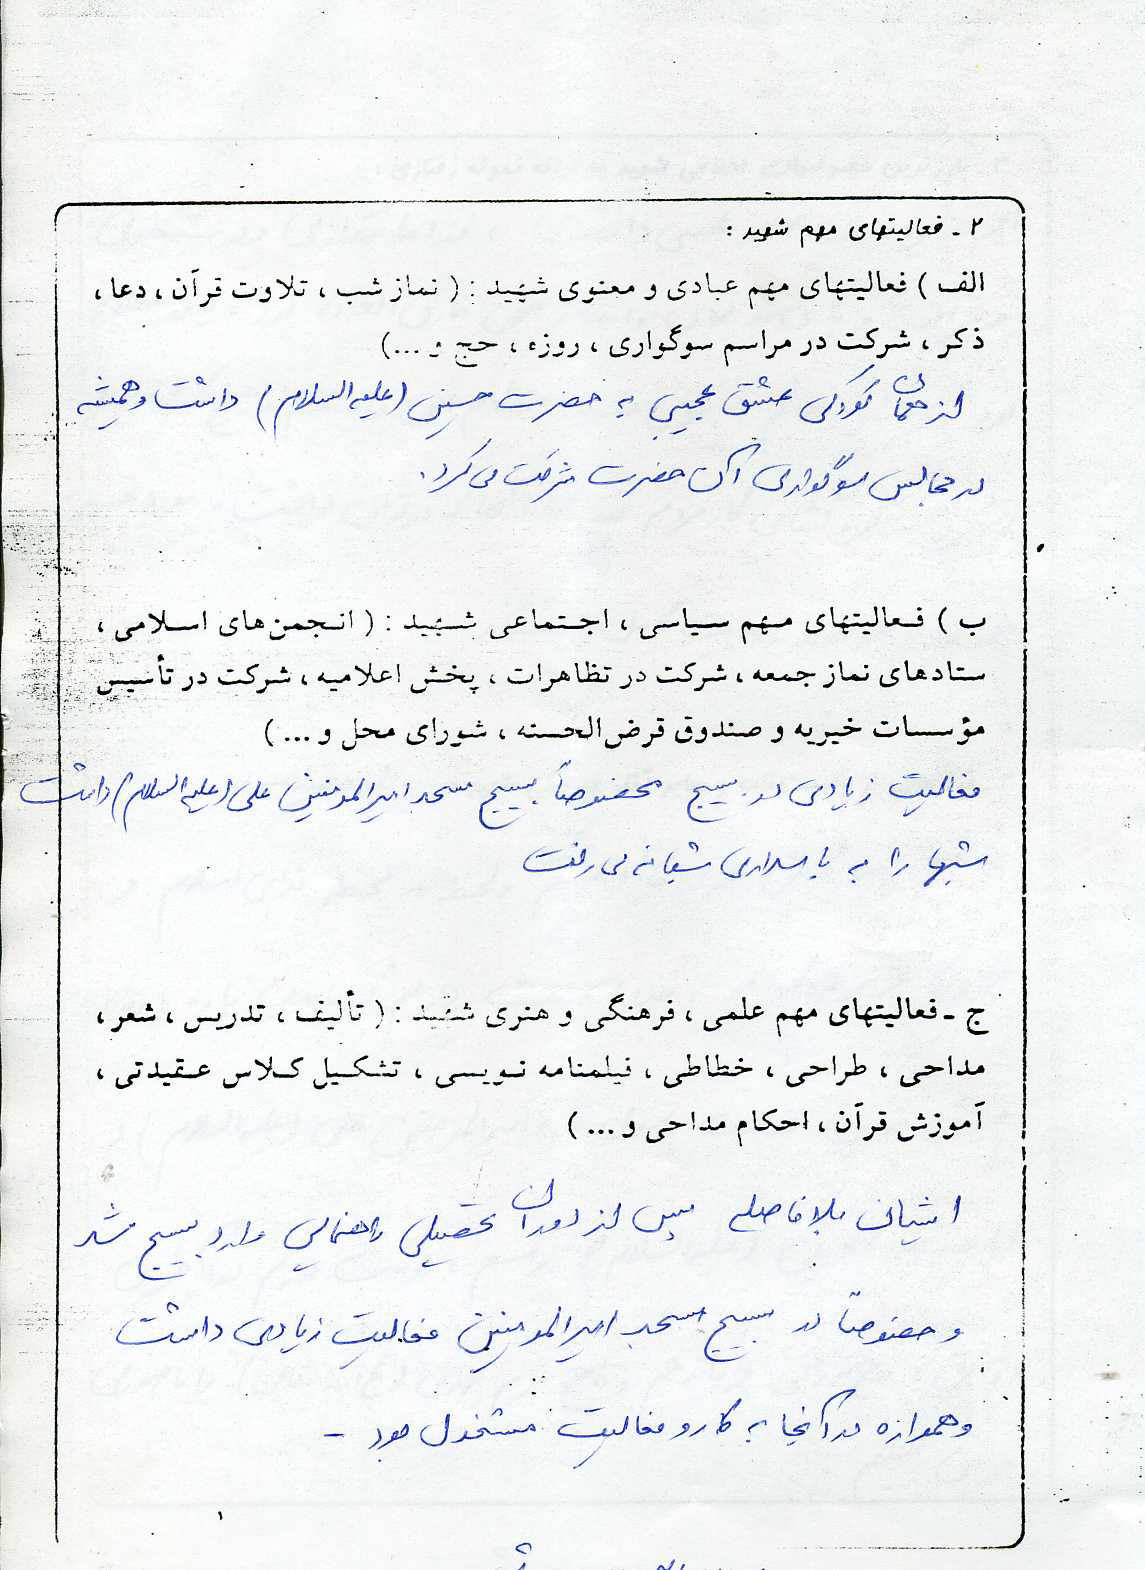 ۲ - فعالیتهای مهم شهید :
الف ) فعالیتهای مهم عبادی و معنوی شهید : ( نماز شب ، تلاوت قرآن ، دعا ،
ذکر ، شرکت در مراسم سوگواری ، روزه ، حج و ...)
از همان کودکی عشق عجیبی به حضرت حسین (علیه السلام) داشت و همیشه
در مجالس سوگواری آن حضرت شرکت می کرد.
ب ) فعالیتهای مهم سیاسی ، اجتماعی شهید : ( انجمن های اسلامی ،
ستادهای نماز جمعه ، شرکت در تظاهرات ، پخش اعلامیه ، شرکت در تأسیس
مؤسسات خیریه و صندوق قرض الحسنه ، شورای محل و ... )
فعالیت زیادی در بسیج مخصوصاً بسیج مسجد امیرالمومنین علی (علیه السلام) داشت
شبها را به پاسداری شبانه می رفت
ج - فعالیتهای مهم علمی ، فرهنگی و هنری شهید : ( تألیف ، تدریس ، شعر ،
مداحی ، طراحی ، خطاطی ، فیلمنامه نویسی ، تشکیل کلاس عقیدتی ،
آموزش قرآن ، احکام مداحی و ... )
ایشان بلافاصله پس از دوران تحصیلی راهنمایی وارد بسیج شد
و خصوصاً در بسیج مسجد امیرالمومنین فعالیت زیادی داشت
و همواره در آنجا به کار و فعالیت مشغول بود -